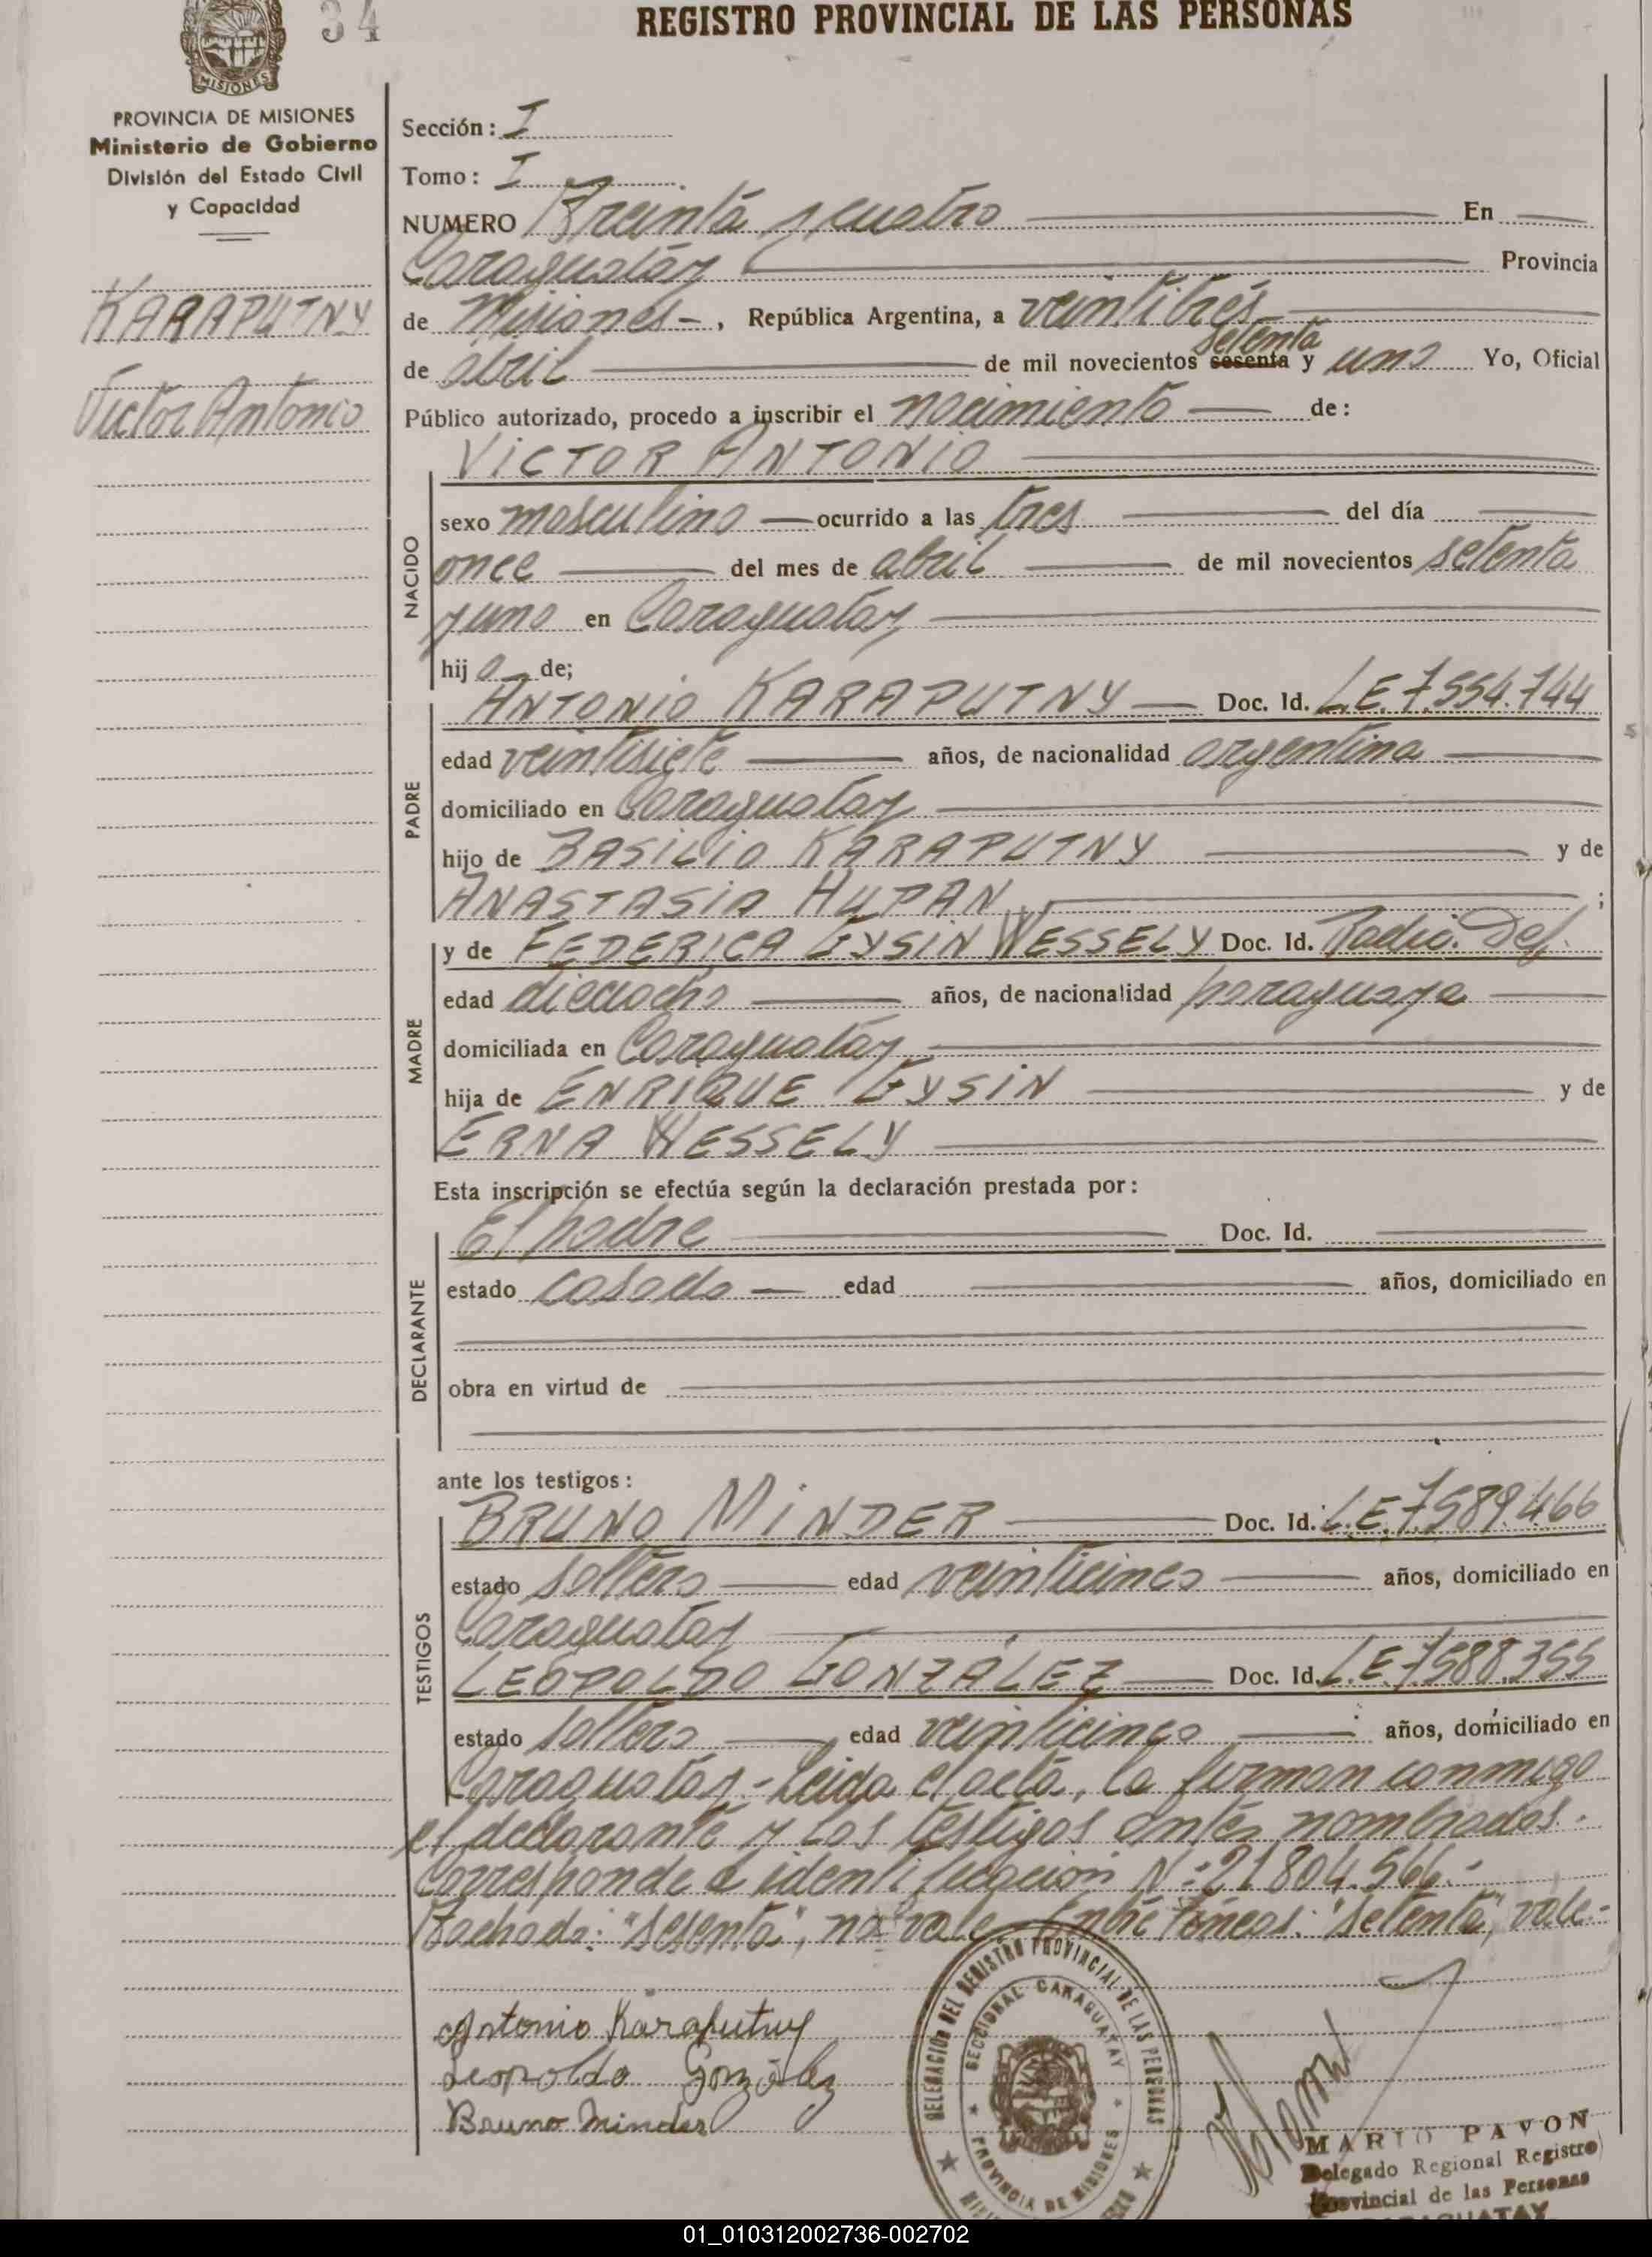 34
REGISTRO PROVINCIAL DE LAS PERSONAS
MISIONES
PROVINCIA DE MISIONES
Ministerio de Gobierno
División del Estado Civil
y Capacidad
KARAPUTNY
Victor Antonio
Sección: I
Tomo: I
NUMERO Treinta y cuatro En
Caraguatay Provincia
de Misiones-, República Argentina, a veintitrés
setenta
de abril de mil novecientos sesenta y uno Yo, Oficial
Público autorizado, procedo a inscribir el nacimiento de:
VICTOR ANTONIO
NACIDO
sexo masculino ocurrido a las tres del día
once del mes de abril de mil novecientos setenta
y uno en Caraguatay
hijo de;
PADRE
ANTONIO KARAPUTNY Doc. Id. L.E. 7.554.744
edad veintisiete años, de nacionalidad argentina
domiciliado en Caraguatay
hijo de BASILIO KARAPUTNY y de
ANASTASIA HUPAN ;
MADRE
y de FEDERICA GYSIN WESSELY Doc. Id. Radic. Def.
edad dieciocho años, de nacionalidad paraguaya
domiciliada en Caraguatáy
hija de ENRIQUE GYSIN y de
ERNA WESSELY
Esta inscripción se efectúa según la declaración prestada por:
DECLARANTE
El padre Doc. Id.
estado casado edad años, domiciliado en
obra en virtud de
ante los testigos:
TESTIGOS
BRUNO MINDER Doc. Id. L.E. 7589.466
estado soltero edad veinticinco años, domiciliado en
Caraguatay
LEOPOLDO GONZÁLEZ Doc. Id. L.E. 7588.355
estado soltero edad veinticinco años, domiciliado en
Caraguatay.- Leida el acta, la firman conmigo
el declarante y los testigos antes nombrados.-
Corresponde a identificación N.º 21.804.566.-
Tachado: "sesenta", no vale. Entre líneas: "setenta", vale.-
Antonio Karaputny
Leopoldo González
Bruno Minder
DELEGACION DEL REGISTRO PROVINCIAL DE LAS PERSONAS
SECCIONAL CARAGUATAY
PROVINCIA DE MISIONES
MARIO PAVON
Delegado Regional Registro
Provincial de las Personas
CARAGUATAY
01_010312002736-002702